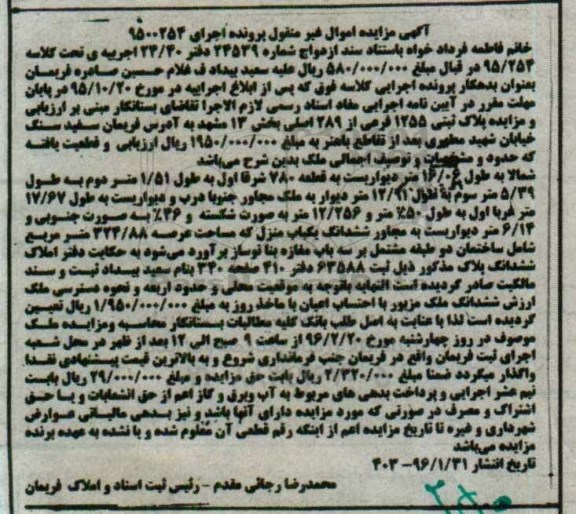 آگهی مزایده اموال غیر منقول پرونده اجرای ۹۵۰۰۲۵۴
خانم فاطمه فرداد خواه باستناد سند ازدواج شماره ۲۴۵۳۹ دفتر ۲۴/۳۰ اجرییه ی تحت کلاسه
۹۵/۲۵۴ در قبال مبلغ ۵۸۰/۰۰۰/۰۰۰ ریال علیه سعید بیداد ف غلام حسین صادره فریمان
بعنوان بدهکار پرونده اجرایی کلاسه فوق که پس از ابلاغ اجراییه در مورخ ۹۵/۱۰/۲۰ در پایان
مهلت مقرر در آیین نامه اجرایی مفاد اسناد رسمی لازم الاجرا تقاضای بستانکار مبنی بر ارزیابی
و مزایده پلاک ثبتی ۱۲۵۵ فرعی از ۲۸۹ اصلی بخش ۱۳ مشهد به آدرس فریمان سفید سنگ
خیابان شهید مطهری بعد از تقاطع باهنر به مبلغ ۱۹۵۰/۰۰۰/۰۰۰ ریال ارزیابی و قطعیت یافته
که حدود و مشخصات و توصیف اجمالی ملک بدین شرح می‌باشد
شمالا به طول ۱۶/۰۶ متر دیواریست به قطعه ۷۸۰ شرقا اول به طول ۱/۵۱ متر دوم به طول
۵/۳۹ متر سوم به طول ۱۲/۹۱ متر دیوار به ملک مجاور جنوبا درب و دیواریست به طول ۱۷/۶۷
متر غربا اول به طول ۵۰٪ متر و ۱۲/۲۵۶ متر به صورت شکسته و ۳۶٪ به صورت جنوبی و
۶/۱۴ متر دیواریست به مجاور ششدانگ یکباب منزل که مساحت عرصه ۳۳۴/۸۸ متر مربع
شامل ساختمان دو طبقه مشتمل بر سه باب مغازه بنا نوساز برآورد می‌شود به حکایت دفتر املاک
ششدانگ پلاک مذکور ذیل ثبت ۶۳۵۸۸ دفتر ۴۱۰ صفحه ۳۴۰ بنام سعید بیداد ثبت و سند
مالکیت صادر گردیده است النهایه باتوجه به موقعیت محلی و حدود اربعه و نحوه دسترسی ملک
ارزش ششدانگ ملک مزبور با احتساب اعیان با ماخذ روز به مبلغ ۱/۹۵۰/۰۰۰/۰۰۰ ریال تعیین
گردیده است لذا با عنایت به اصل طلب بانک کلیه مطالبات بستانکار محاسبه ومزایده ملک
موصوف در روز چهارشنبه مورخ ۹۶/۲/۲۰ از ساعت ۹ صبح الی ۱۲ بعد از ظهر در محل شعبه
اجرای ثبت فریمان واقع در فریمان جنب فرمانداری شروع و به بالاترین قیمت پیشنهادی نقدا
واگذار میگردد ضمنا مبلغ ۲/۳۲۰/۰۰۰ ریال بابت حق مزایده و مبلغ ۲۹/۰۰۰/۰۰۰ ریال بابت
نیم عشر اجرایی و پرداخت بدهی های مربوط به آب وبرق و گاز اعم از حق انشعابات و یا حق
اشتراک و مصرف در صورتی که مورد مزایده دارای آنها باشد و نیز بدهی مالیاتی عوارض
شهرداری و غیره تا تاریخ مزایده اعم از اینکه رقم قطعی آن معلوم شده و یا نشده به عهده برنده
مزایده می‌باشد
تاریخ انتشار ۹۶/۱/۳۱- ۴۰۳
محمدرضا رجائی مقدم - رئیس ثبت اسناد و املاک فریمان